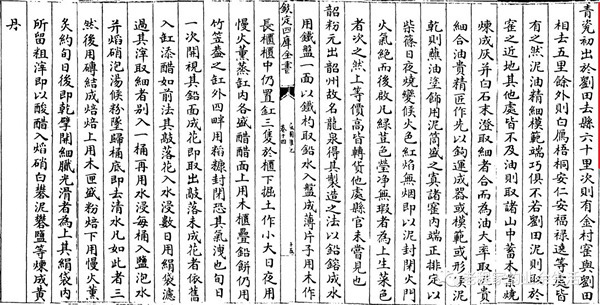 青瓷初出於劉田去縣六十里次則有金村窰與劉田
相去五里餘外則白鴈梧桐安仁安福祿遶等處皆
有之然泥油精細模範端巧俱不若劉田泥則取於
窰之近地其他處皆不及油則取諸山中蓄木葉燒
煉成灰并白石末澄取細者合而為油大率取泥貴
細合油貴精匠作先以鈞運成器或模範成形候泥
乾則蘸油塗飾用泥筒盛之寘諸窰內端正排定以
柴篠日夜燒變候火色紅焰無烟即以泥封閉火門
火氣絕而後啟凡綠荳色瑩淨無瑕者為上生菜色
者次之然上等價高皆轉貨他處縣官未嘗見也
韶粉元出韶州故名龍泉得其製造之法以鉛鎔成水
欽定四庫全書
卷十四
用鐵盤一面以鐵杓取鉛水入盤成薄片子用木作
長櫃櫃中仍置缸三隻於櫃下掘土作小火日夜用
慢火薰蒸缸內各盛醋醋面上用木櫃疊鉛餅仍用
竹笠盖之缸外四畔用稻糠封閉恐其氣洩也旬日
一次開視其鉛面成花即取出敲落未成花者依舊
入缸添醋如前法其敲落花入水浸數日用絹袋濾
過其滓取細者别入一桶再用水浸每桶入鹽泡水
并焰硝泡湯候粉墜歸桶底即去清水凡如此者三
然後用磚結成焙焙上用木匣盛粉焙下用慢火薰
炙約旬日後即乾擘開細膩光滑者為上其絹袋內
所留粗滓即以酸醋入焰硝白礬泥礬鹽等煉成黄
丹